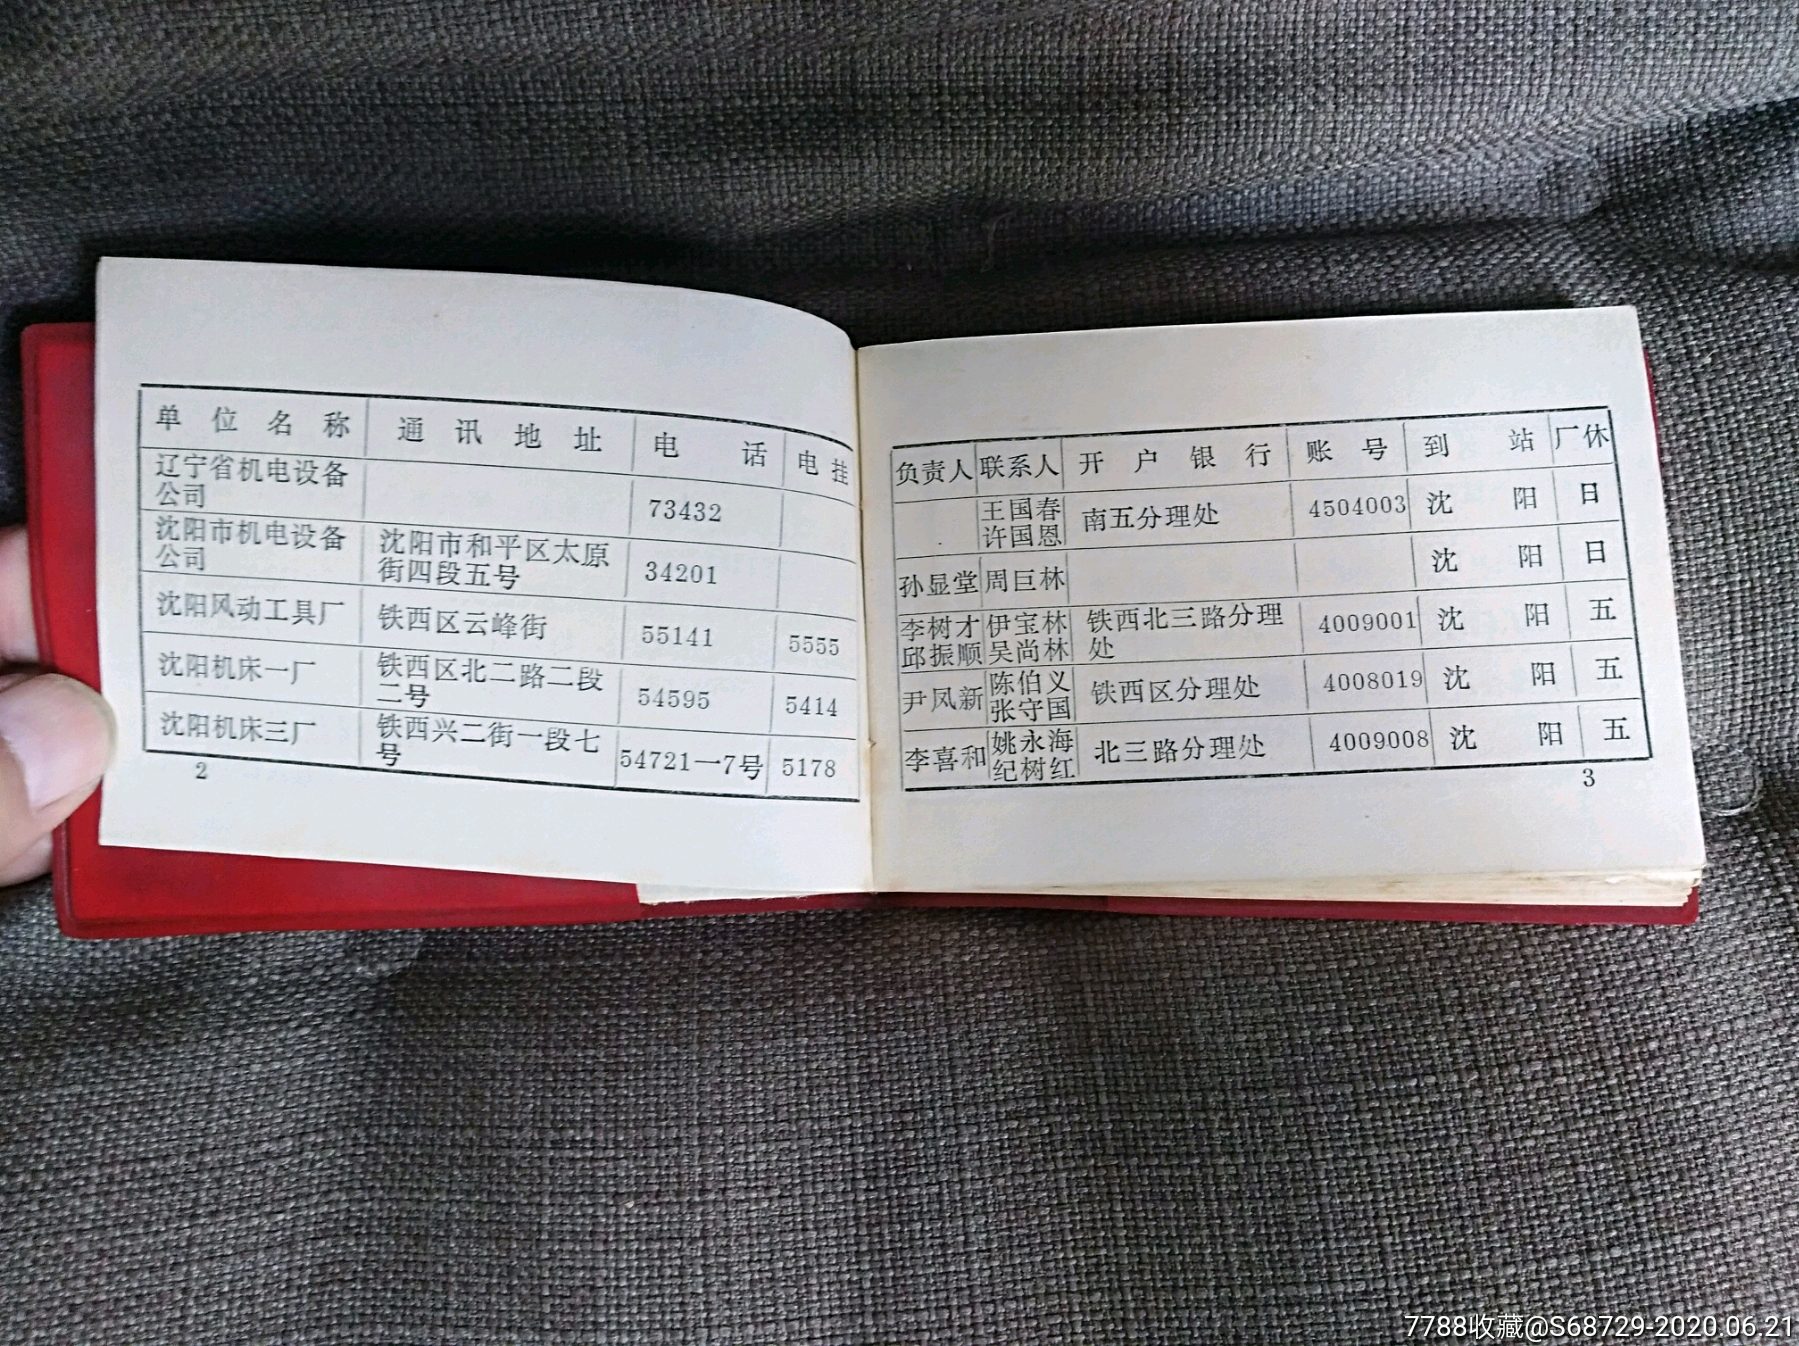 单位名称 通讯地址 电话 电挂
辽宁省机电设备
公司 73432
沈阳市机电设备
公司 沈阳市和平区太原
街四段五号 34201
沈阳风动工具厂 铁西区云峰街 55141 5555
沈阳机床一厂 铁西区北二路二段
二号 54595 5414
沈阳机床三厂 铁西兴二街一段七
号 54721—7号 5178
2
负责人 联系人 开户银行 账号 到站 厂休
王国春
许国恩 南五分理处 4504003 沈阳 日
孙显堂 周巨林 沈阳 日
李树才 伊宝林 铁西北三路分理
邱振顺 吴尚林 处 4009001 沈阳 五
尹风新 陈伯义
张守国 铁西区分理处 4008019 沈阳 五
李喜和 姚永海
纪树红 北三路分理处 4009008 沈阳 五
3
7788收藏@S68729-2020.06.21